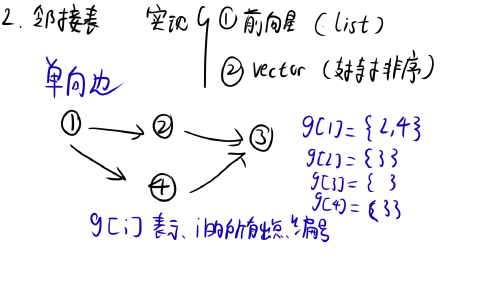 2. 邻接表 实现 ① 前向星 (list)
② vector (排序)
单向边
① ② ③ ④
g[1] = {2,4}
g[2] = {3}
g[3] = { }
g[4] = {3}
g[i] 表示 i的所有出点编号